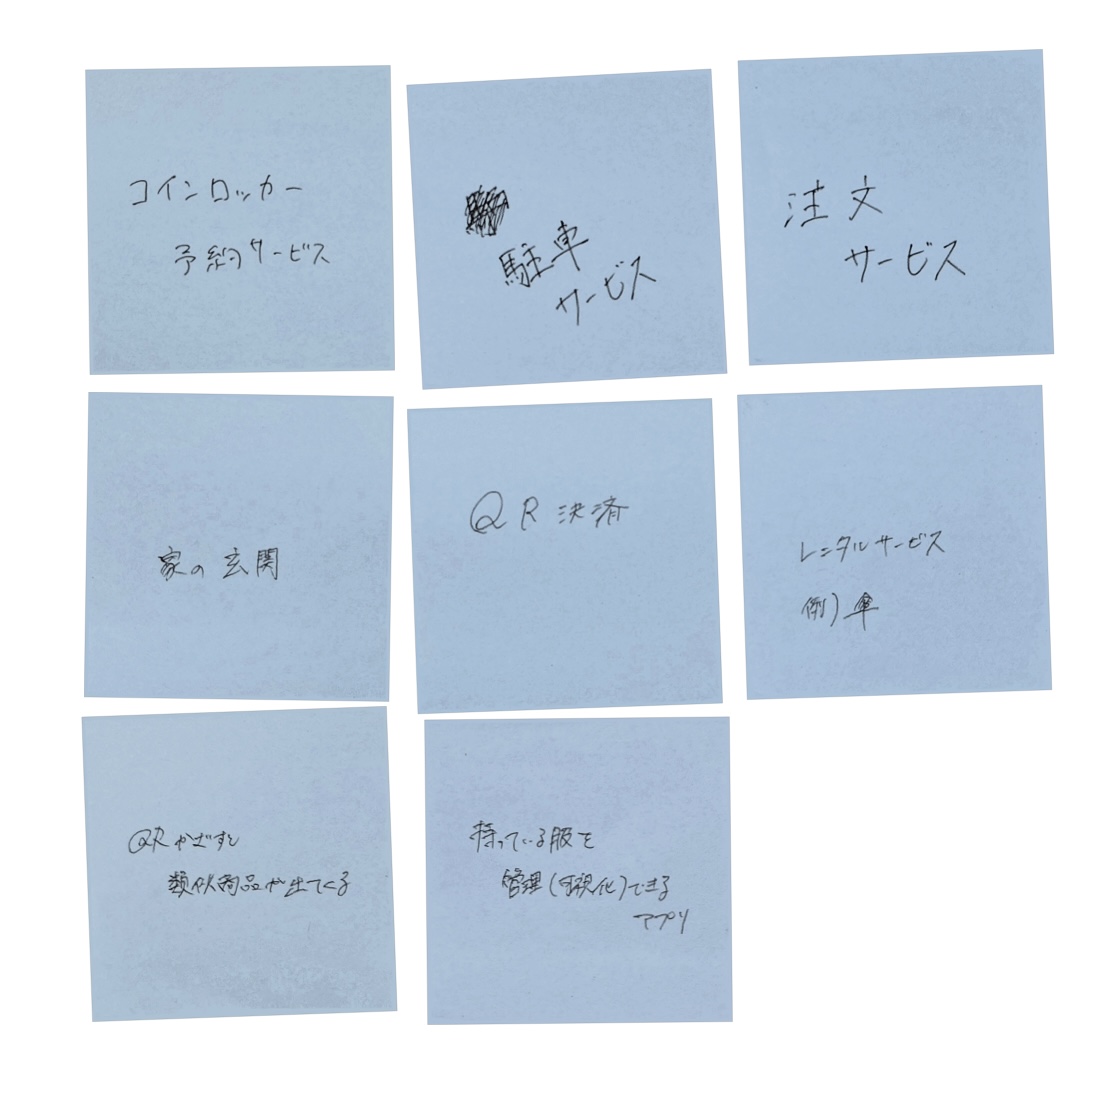 コインロッカー
予約サービス
駐車
サービス
注文
サービス
家の玄関
QR決済
レンタルサービス
例)傘
QRかざすと
類似商品が出てくる
持っている服を
管理(可視化)できる
アプリ